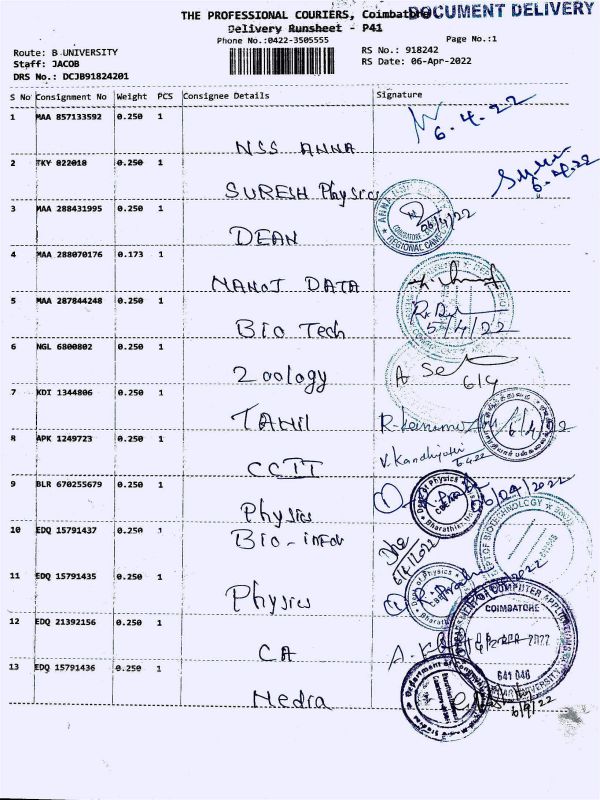 DOCUMENT DELIVERY
THE PROFESSIONAL COURIERS, Coimbatore
Delivery Runsheet - P41
Phone No.:0422-3505555
Page No.:1
Route: B UNIVERSITY
RS No.: 918242
Staff: JACOB
RS Date: 06-Apr-2022
DRS No.: DCJB91824201
S No Consignment No Weight PCS Consignee Details Signature
1 MAA 857133592 0.250 1
6.4.22
NSS ANNA
2 TKY 022018 0.250 1
6.4.22
SURESH Physics
3 MAA 288431995 0.250 1
06/4/22
DEAN
4 MAA 288070176 0.173 1
MANOJ DATA
5 MAA 287844248 0.250 1
5/4/22
Bio Tech
6 NGL 6800802 0.250 1
6/4
Zoology
7 KDI 1344806 0.250 1
6/4/22
TAMIL
8 APK 1249723 0.250 1
V. Kandhijothi
6.4.22
CCIT
9 BLR 670255679 0.250 1
Dept of Physics
06/04/2022
Physics
10 EDQ 15791437 0.250 1
DEPT OF BIOTECHNOLOGY
6/4/2022
Bio-infor
11 EDQ 15791435 0.250 1
Dept of Physics
Physics
12 EDQ 21392156 0.250 1
COMPUTER APPLICATIONS
COIMBATORE
641 046
CA
13 EDQ 15791436 0.250 1
Department of
Media